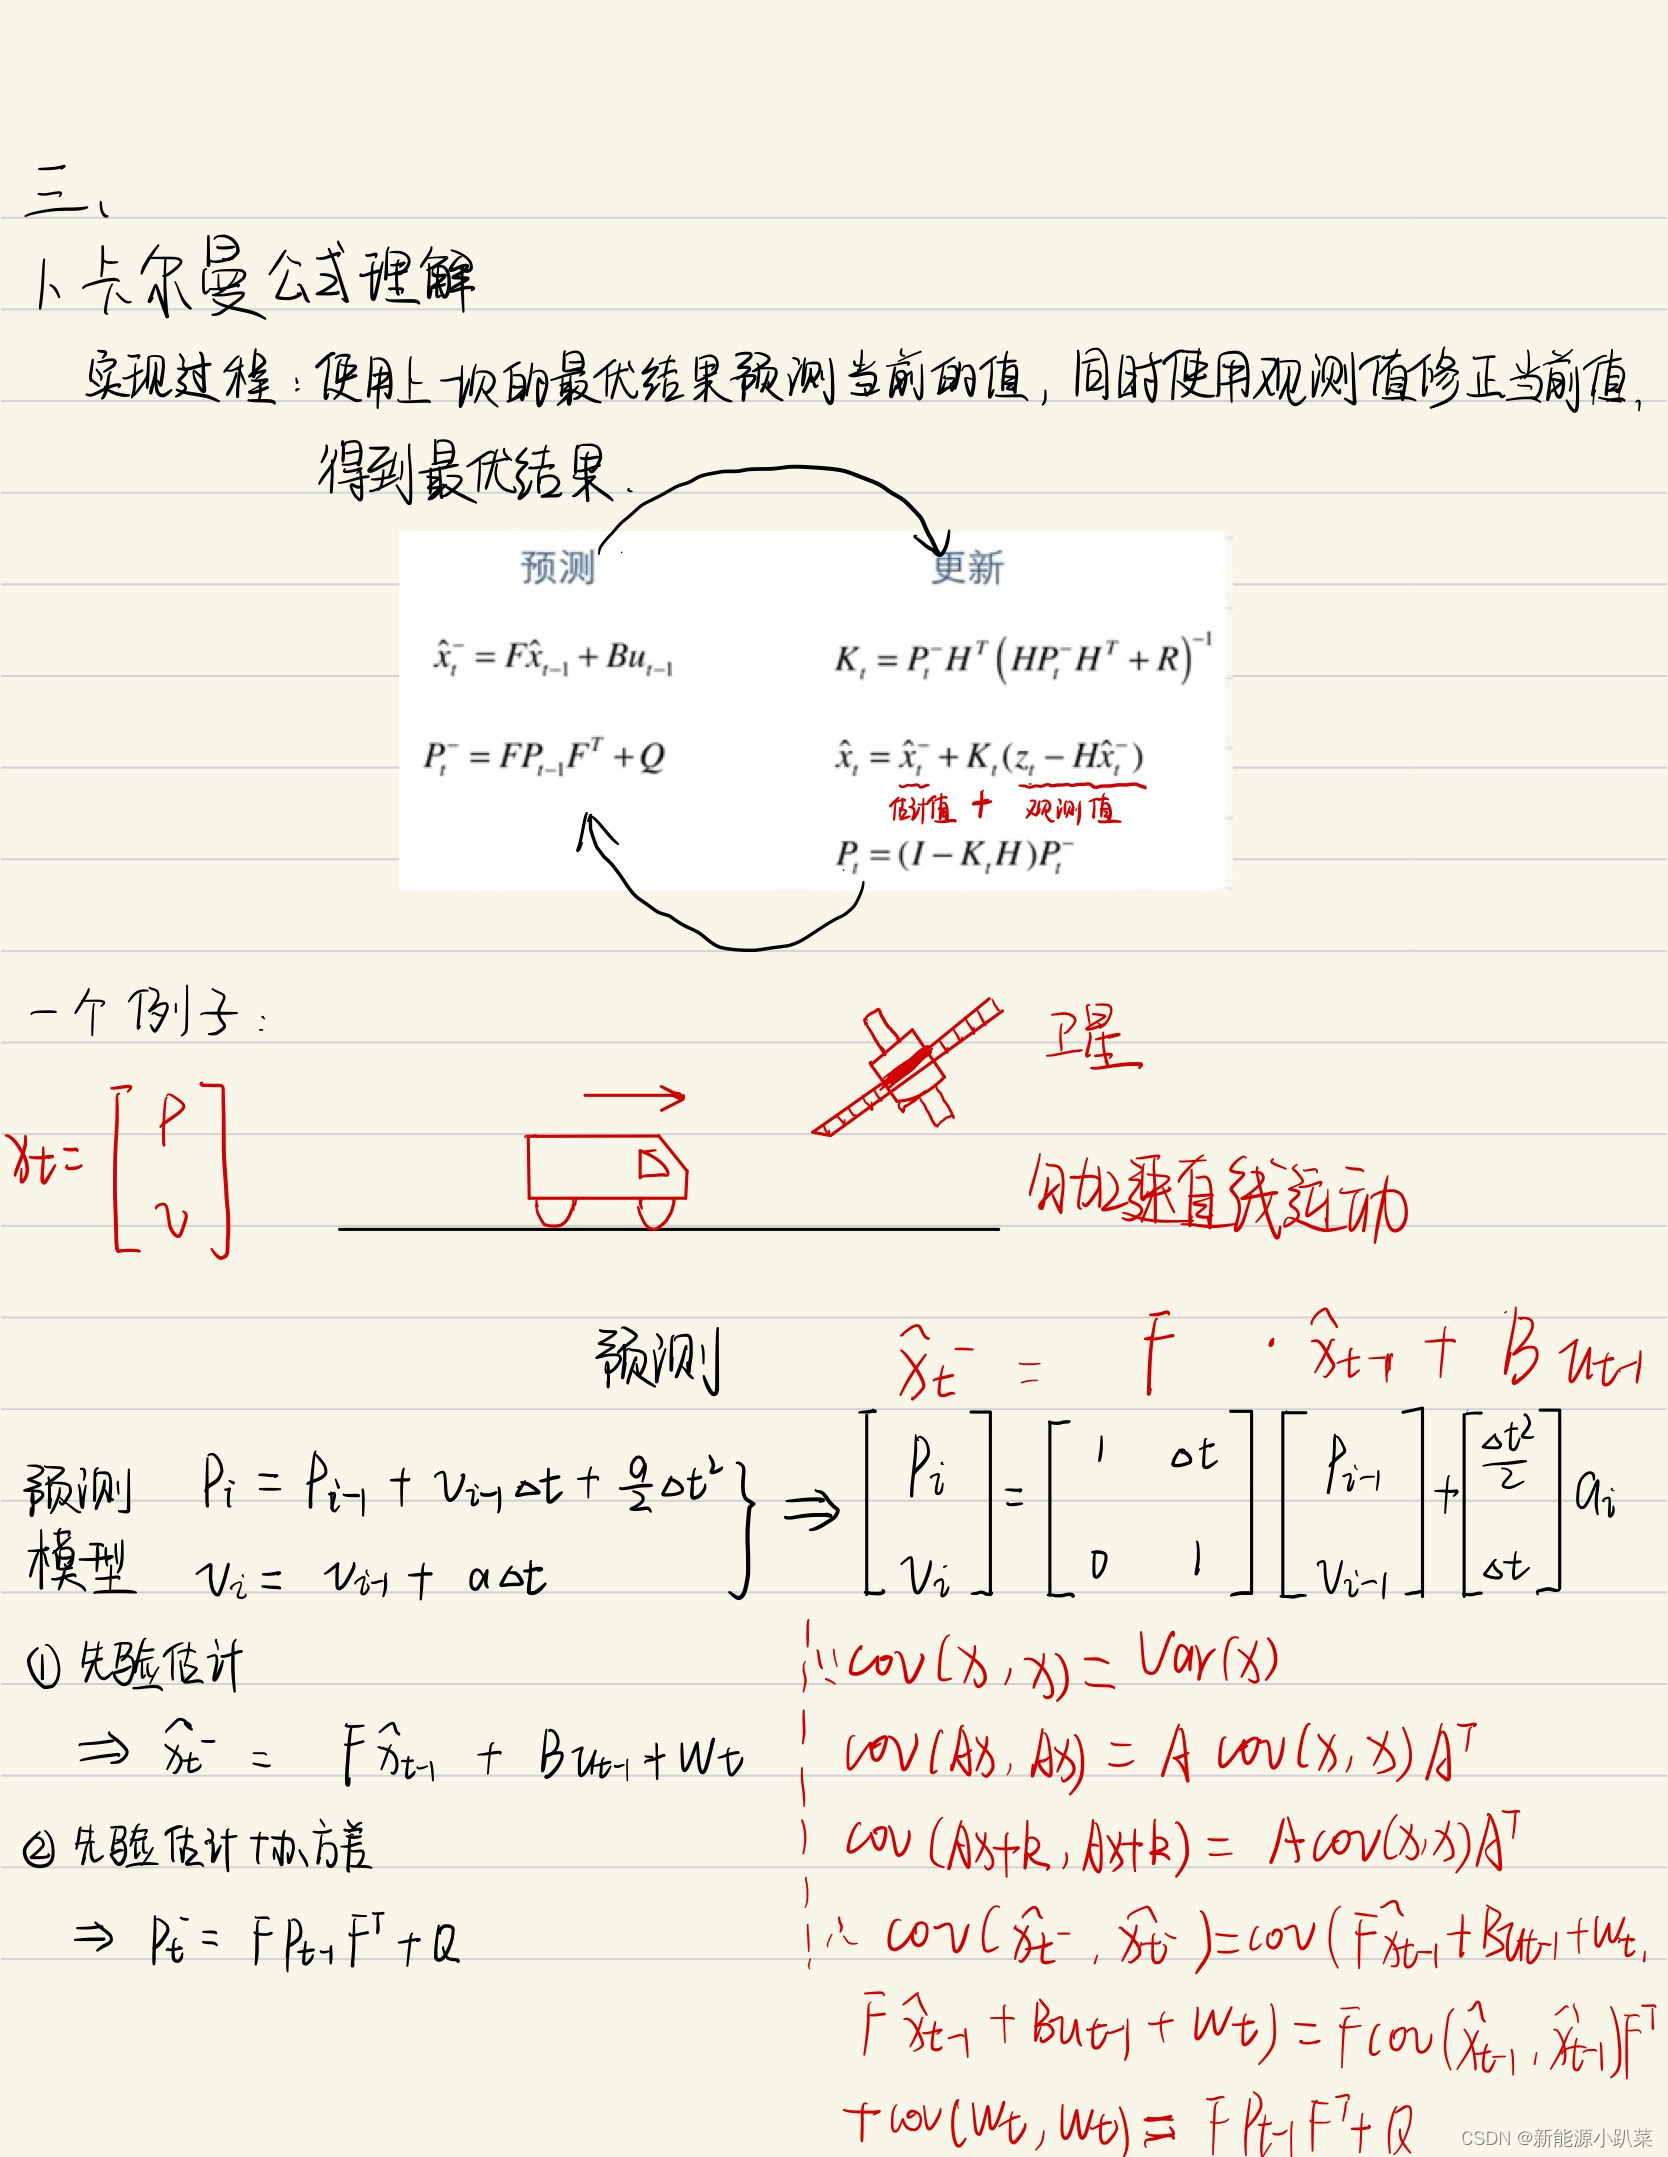 三、
1、卡尔曼公式理解
实现过程：使用上一次的最优结果预测当前的值，同时使用观测值修正当前值，
得到最优结果.
预测 更新
x̂ₜ⁻ = Fx̂ₜ₋₁ + Buₜ₋₁ Kₜ = Pₜ⁻Hᵀ(HPₜ⁻Hᵀ + R)⁻¹
Pₜ⁻ = FPₜ₋₁Fᵀ + Q x̂ₜ = x̂ₜ⁻ + Kₜ(zₜ − Hx̂ₜ⁻)
估计值 + 观测值
Pₜ = (I − KₜH)Pₜ⁻
一个例子：
卫星
xt = [P v]
匀加速直线运动
预测 x̂t⁻ = F · x̂t-1 + B ut-1
预测模型 Pi = Pi-1 + vi-1 Δt + a/2 Δt² } ⇒ [Pi vi] = [1 Δt 0 1] [Pi-1 vi-1] + [Δt²/2 Δt] ai
vi = vi-1 + aΔt
① 先验估计
⇒ x̂t⁻ = Fx̂t-1 + But-1 + wt
② 先验估计协方差
⇒ Pt⁻ = FPt-1Fᵀ + Q
∵ cov(x, x) = Var(x)
cov(Ax, Ax) = A cov(x, x)Aᵀ
cov(Ax+k, Ax+k) = Acov(x,x)Aᵀ
∴ cov(x̂t⁻, x̂t⁻) = cov(Fx̂t-1 + But-1 + wt,
Fx̂t-1 + But-1 + wt) = Fcov(x̂t-1, x̂t-1)Fᵀ
+ cov(wt, wt) = FPt-1Fᵀ + Q
CSDN @新能源小趴菜